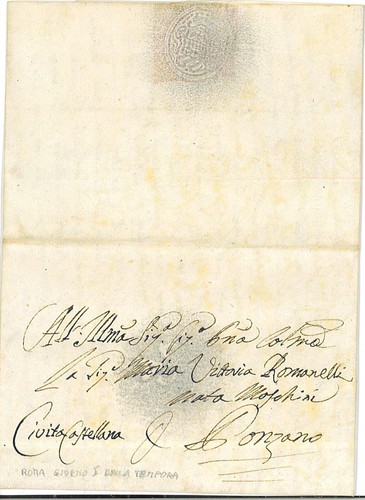 All' Illma Sig.ra Sig.ra Pna Colma
La Sig.ra Maria Vittoria Romanelli
nata Moschini
Civita Castellana Ponzano
ROMA GIORNO I DELLA TEMPORA